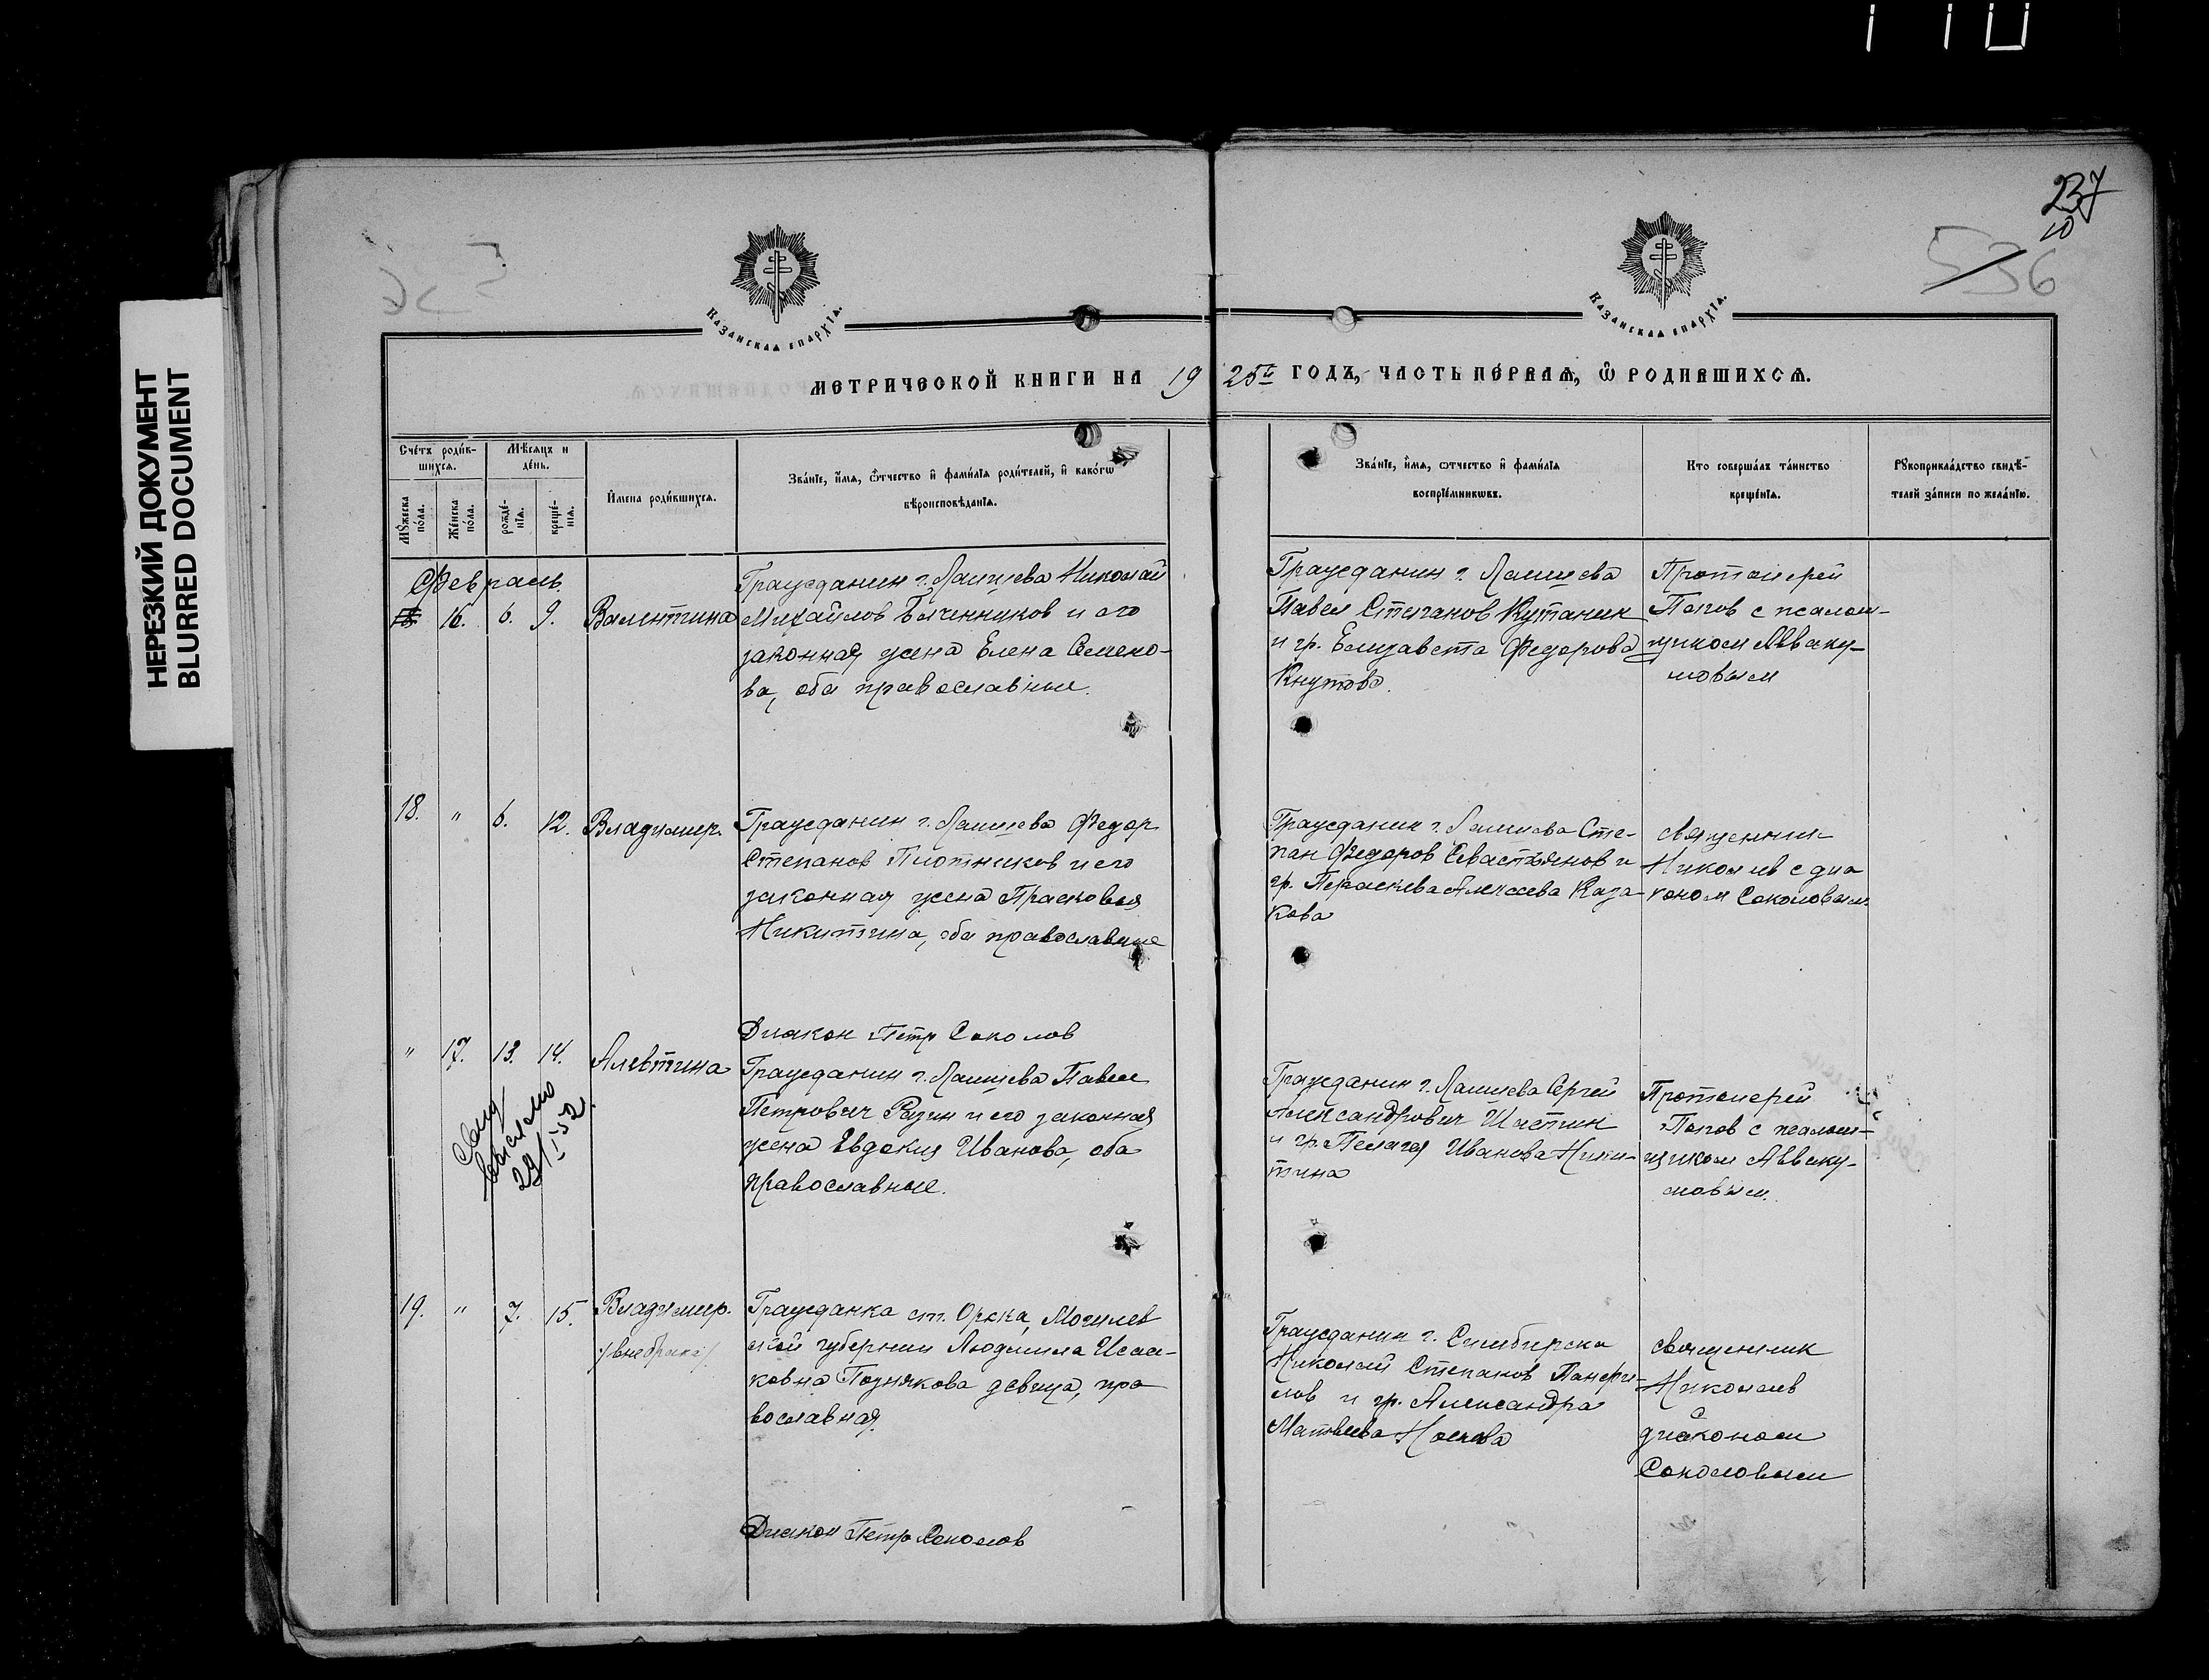 237
10
536
НЕРЕЗКИЙ ДОКУМЕНТ
BLURRED DOCUMENT
Казанская епархїѧ.
Казанская епархїѧ.
МЕТРИЧЕСКОЙ КНИГИ НА 1925й ГОДЪ, ЧАСТЬ ПЕ́РВАѦ, Ѽ РОДИВШИХСѦ.
Сче́тъ роди́в-
шихсѧ.
Мѣ́сѧцъ и
де́нь.
Мꙋ́жеска
по́ла.
Же́нска
по́ла.
рожде́-
нїѧ.
креще́-
нїѧ.
И҆мена роди́вшихсѧ.
Зва́нїе, и҆́мѧ, ѻ҆́тчество и҆ фами́лїѧ роди́телей, и҆ како́гѡ
вѣроисповѣ́данїѧ.
Зва́нїе, и҆́мѧ, ѻтчество и҆ фами́лїѧ
воспрїе́мникѡвъ.
Кто соверша́лъ та́инство
креще́нїѧ.
Рꙋкоприкла́дство свидѣ́-
телей за́писи по жела́нїю.
Февраль.
16. 6. 9. Валентина
Гражданин г. Лаишева Николай
Михайлов и его
законная жена Елена Семено-
ва, оба православные.
Гражданин г. Лаишева
Павел Степанов Кутаник
и гр. Елизавета Федорова
Кнутова.
Протоиерей
Попов с псалом-
щиком Авваку-
мовым
18. " 6. 12. Владимир.
Гражданин г. Лаишева Федор
Степанов Плотников и его
законная жена Прасковья
Никитина, оба православные
Гражданин г. Лаишева Сте-
пан Федоров Севастьянов и
гр. Параскева Алексеева Каза-
кова
священник
Николаев с диа
коном Соколовым.
Диакон Петр Соколов
" 17. 13. 14. Алевтина
Свид
выслано
29/I 52.
Гражданин г. Лаишева Павел
Петрович Разин и его законная
жена Евдокия Иванова, оба
православные.
Гражданин г. Лаишева Сергей
Александрович Шастин
и гр. Пелагея Иванова Ники-
тина
Протоиерей
Попов с псалом-
щиком Авваку-
мовым.
19. " 7. 15. Владимир.
/внебрачн/
Гражданка ст. Орска, Могилев
ской губернии Людмила Исаа-
ковна Позднякова девица, пра
вославная.
Гражданин г. Симбирска
Николай Степанов Панфи-
лов и гр. Александра
Матвеева Носкова
священник
Николаев
с
диаконом
Соколовым
Диакон Петр Соколов